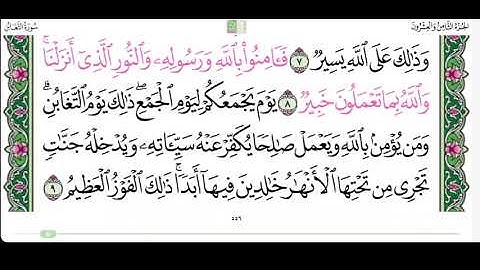 الجزء الثامن والعشرون
سورة التغابن
وَذَٰلِكَ عَلَى ٱللَّهِ يَسِيرٌ ٧ فَـَٔامِنُوا۟ بِٱللَّهِ وَرَسُولِهِۦ وَٱلنُّورِ ٱلَّذِىٓ أَنزَلْنَا ۚ
وَٱللَّهُ بِمَا تَعْمَلُونَ خَبِيرٌ ٨ يَوْمَ يَجْمَعُكُمْ لِيَوْمِ ٱلْجَمْعِ ۖ ذَٰلِكَ يَوْمُ ٱلتَّغَابُنِ ۗ
وَمَن يُؤْمِنۢ بِٱللَّهِ وَيَعْمَلْ صَـٰلِحًا يُكَفِّرْ عَنْهُ سَيِّـَٔاتِهِۦ وَيُدْخِلْهُ جَنَّـٰتٍ
تَجْرِى مِن تَحْتِهَا ٱلْأَنْهَـٰرُ خَـٰلِدِينَ فِيهَآ أَبَدًا ۚ ذَٰلِكَ ٱلْفَوْزُ ٱلْعَظِيمُ ٩
٥٥٦